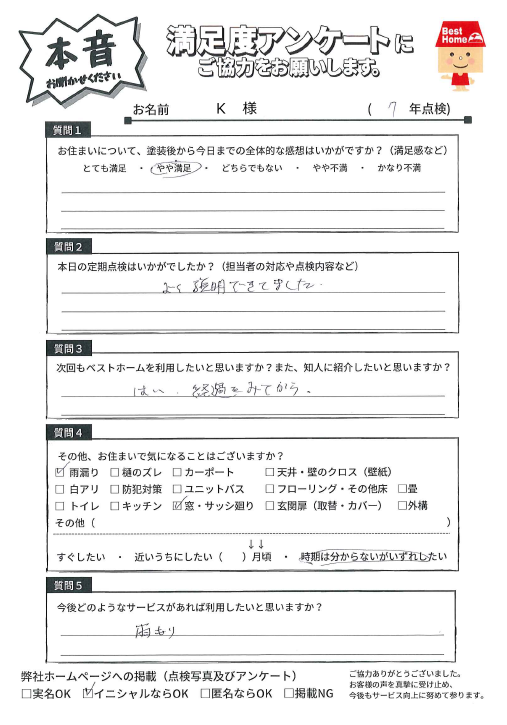 本音
お聞かせください
満足度アンケートに
ご協力をお願いします。
Best Home
お名前 K 様 ( 7 年点検)
質問1
お住まいについて、塗装後から今日までの全体的な感想はいかがですか?(満足感など)
とても満足 ・ やや満足 ・ どちらでもない ・ やや不満 ・ かなり不満
質問2
本日の定期点検はいかがでしたか?(担当者の対応や点検内容など)
よく説明できてました.
質問3
次回もベストホームを利用したいと思いますか?また、知人に紹介したいと思いますか?
はい.経過をみてから。
質問4
その他、お住まいで気になることはございますか?
☑雨漏り □樋のズレ □カーポート □天井・壁のクロス(壁紙)
□白アリ □防犯対策 □ユニットバス □フローリング・その他床 □畳
□トイレ □キッチン ☑窓・サッシ廻り □玄関扉(取替・カバー) □外構
その他( )
↓↓
すぐしたい ・ 近いうちにしたい( )月頃 ・ 時期は分からないがいずれしたい
質問5
今後どのようなサービスがあれば利用したいと思いますか?
雨もり
弊社ホームページへの掲載(点検写真及びアンケート)
□実名OK ☑イニシャルならOK □匿名ならOK □掲載NG
ご協力ありがとうございました。
お客様の声を真摯に受け止め、
今後もサービス向上に努めて参ります。